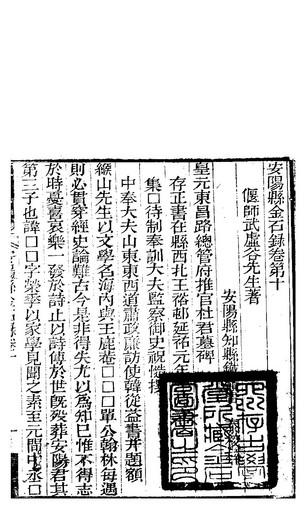 安陽縣金石錄卷第十
偃師武虛谷先生著
安陽縣知縣
皇元東昌路總管府推官杜君墓碑
存正書在縣西北王裕邨延祐元年
集□待制奉訓大夫監察御史祝
中奉大夫山東東西道肅政廉訪使韓從益書并題額
緱山先生以文學名海內與王鹿菴□□□單公翰林每遇
則必貫穿經史論難古今是非得失尤以為知己惟不得志
於時憂喜哀樂一發於詩止以詩傳於世旣歿葬安陽君其
第三子也諱□□字榮季以家學見聞之素至元間中丞□